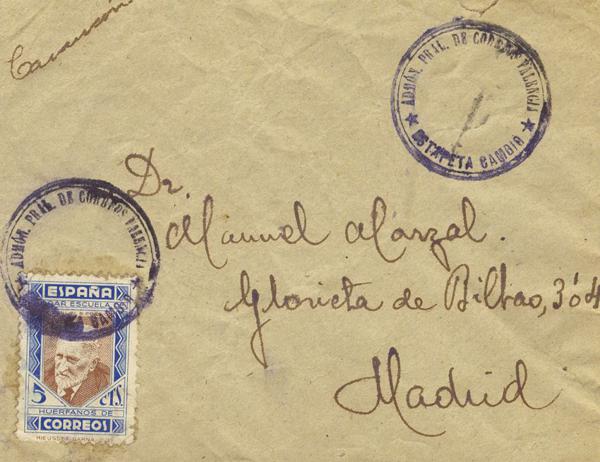 ADMÓN. PRAL. DE CORREOS VALENCIA
★ ESTAFETA CAMBIO ★
Dr.
Manuel Marzal.
Glorieta de Bilbao, 3 ó 4
Madrid
ADMÓN. PRAL. DE CORREOS VALENCIA
CAMBIO
ESPAÑA
ESCUELA
5 CTS.
HUERFANOS DE
CORREOS